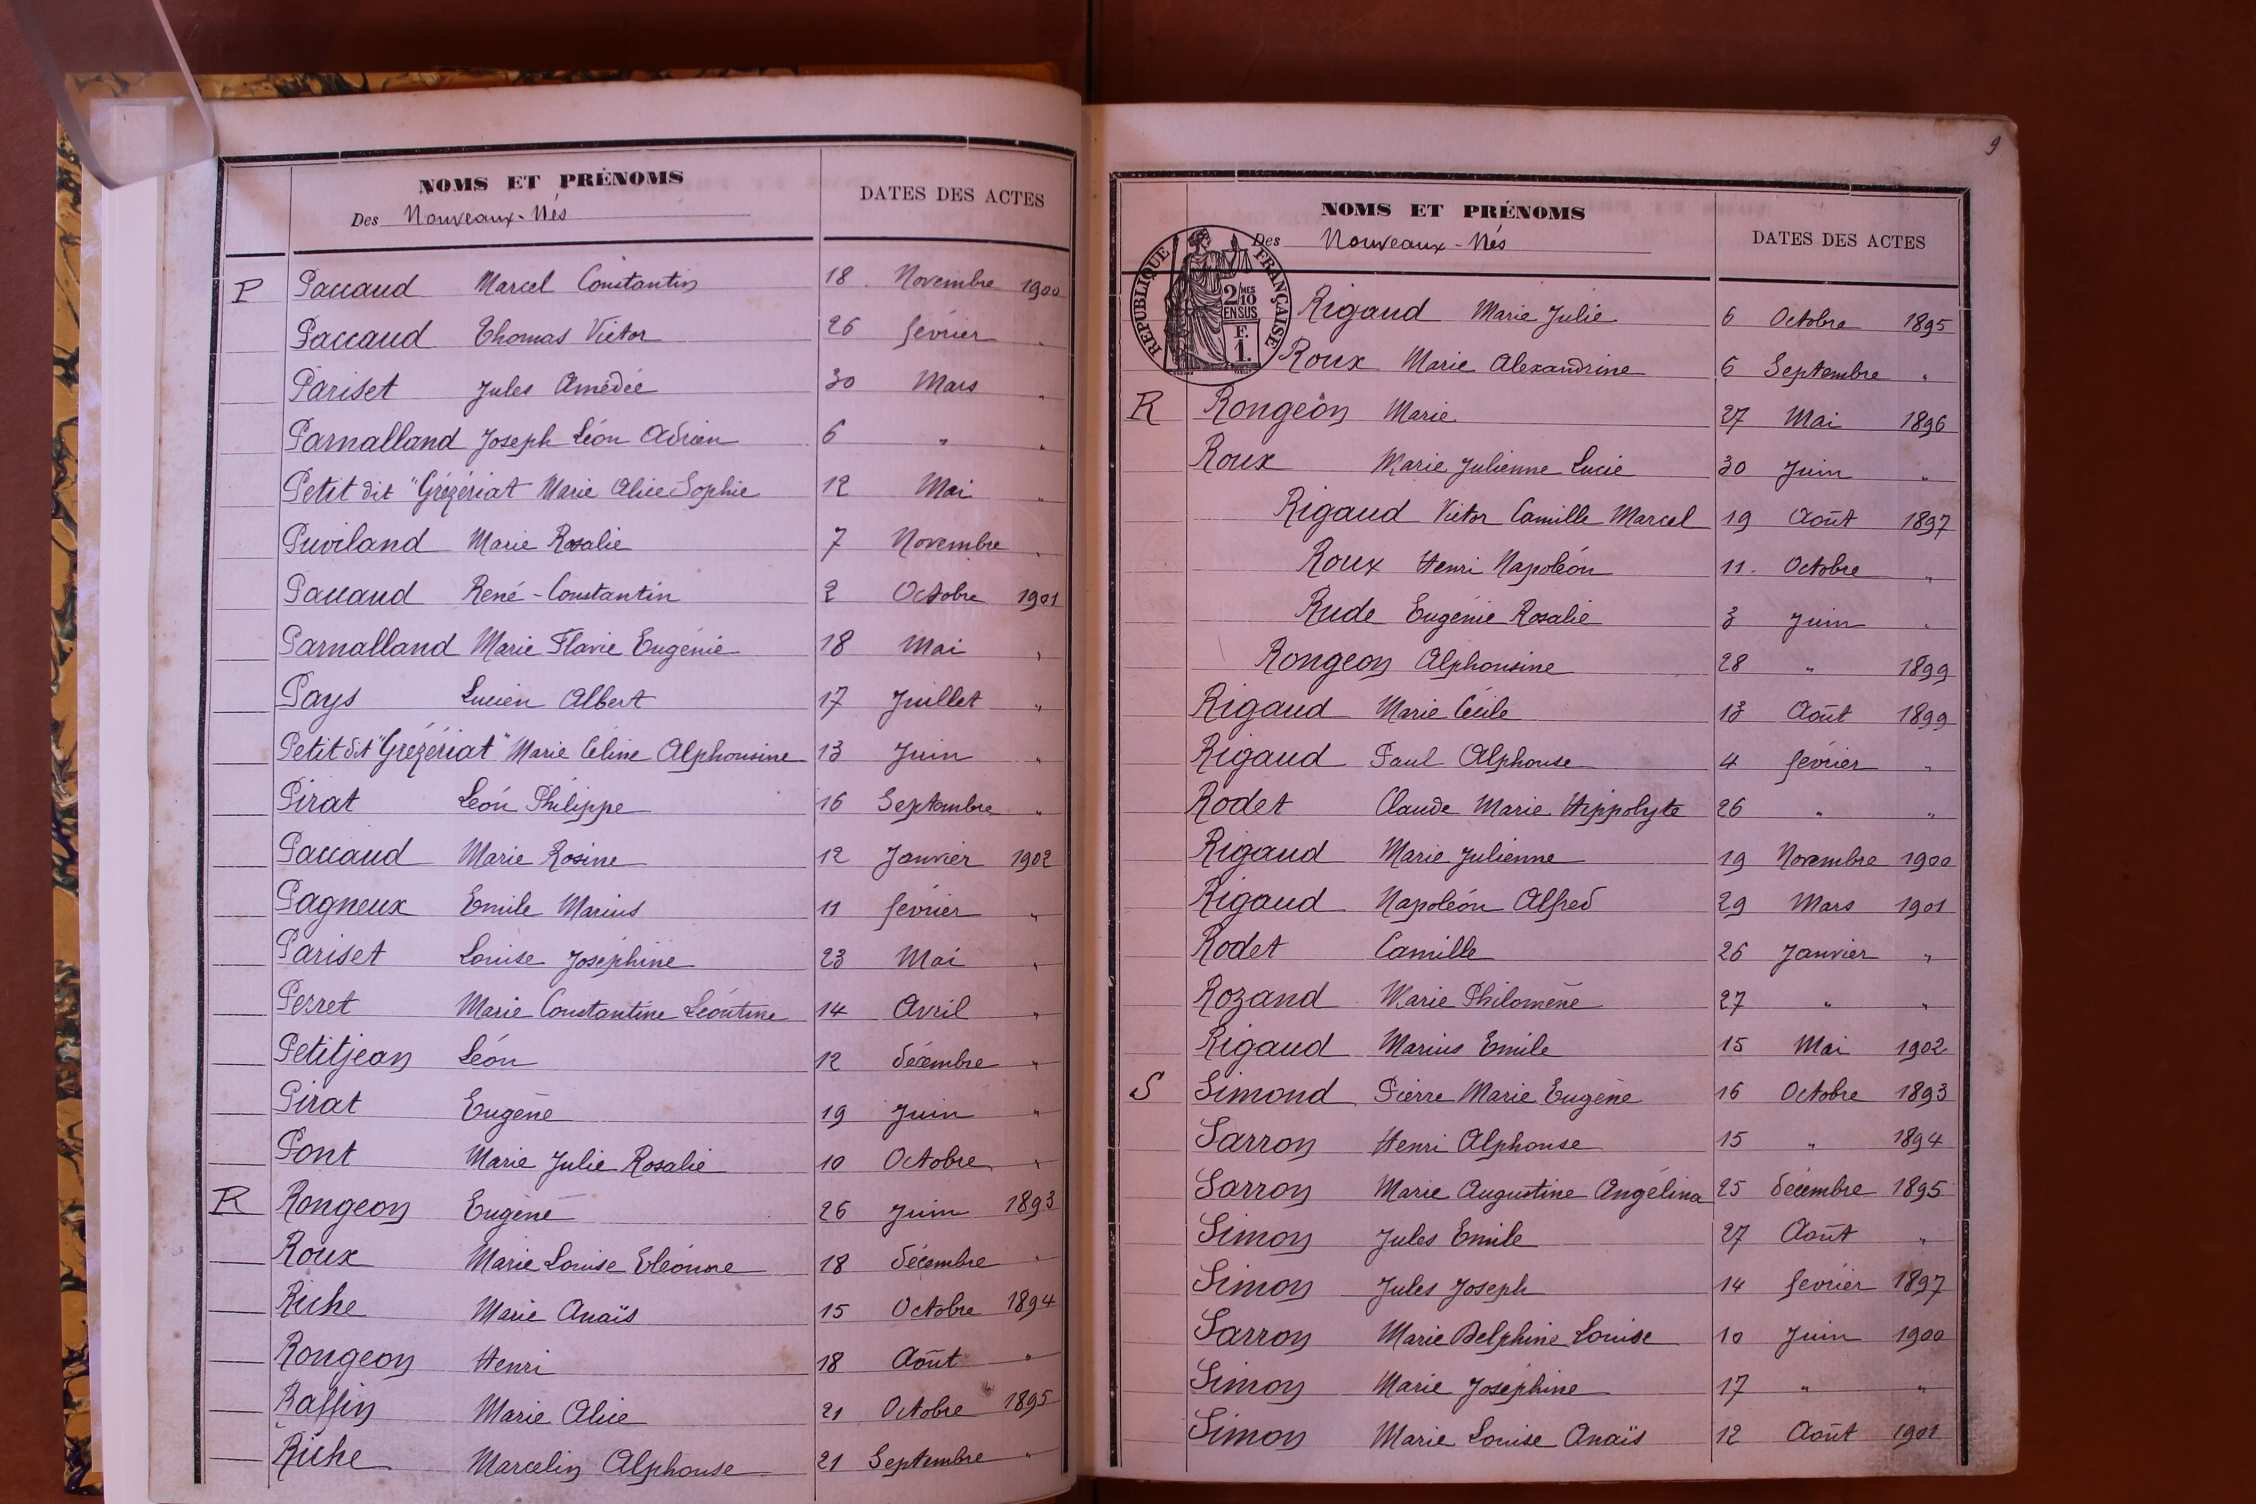 NOMS ET PRÉNOMS
Des Nouveaux-Nés
DATES DES ACTES
P Paccaud Marcel Constantin 18 Novembre 1900
Paccaud Thomas Victor 26 février "
Pariset Jules Amédée 30 Mars "
Parnalland Joseph Léon Adrien 6 " "
Petit dit "Grézériat Marie Alice Sophie 12 Mai "
Puviland Marie Rosalie 7 Novembre "
Paccaud René-Constantin 2 Octobre 1901
Parnalland Marie Flavie Eugénie 18 Mai "
Pays Lucien Albert 17 Juillet "
Petit dit "Grézériat" Marie Céline Alphonsine 13 Juin "
Pirat Léon Philippe 16 Septembre "
Paccaud Marie Rosine 12 Janvier 1902
Pagneux Emile Marius 11 février "
Pariset Louise Joséphine 23 Mai "
Perret Marie Constantine Léontine 14 Avril "
Petitjean Léon 12 décembre "
Pirat Eugène 19 Juin "
Pont Marie Julie Rosalie 10 Octobre "
R Rongeon Eugène 26 Juin 1893
Roux Marie Louise Eléonore 18 décembre "
Riche Marie Anaïs 15 Octobre 1894
Rongeon Henri 18 Août "
Raffin Marie Alice 21 Octobre 1895
Riche Marcelin Alphonse 21 Septembre "
9
NOMS ET PRÉNOMS
Des Nouveaux-Nés
DATES DES ACTES
RÉPUBLIQUE FRANÇAISE
2/10 MES
EN SUS
F.
1.
Rigaud Marie Julie 6 Octobre 1895
Roux Marie Alexandrine 6 Septembre "
R Rongeon Marie 27 Mai 1896
Roux Marie Julienne Lucie 30 Juin "
Rigaud Victor Camille Marcel 19 Août 1897
Roux Henri Napoléon 11. Octobre "
Rude Eugénie Rosalie 3 Juin "
Rongeon Alphonsine 28 " 1899
Rigaud Marie Cécile 13 Août 1899
Rigaud Paul Alphonse 4 février "
Rodet Claude Marie Hippolyte 26 " "
Rigaud Marie Julienne 19 Novembre 1900
Rigaud Napoléon Alfred 29 Mars 1901
Rodet Camille 26 Janvier "
Rozand Marie Philomène 27 " "
Rigaud Marius Emile 15 Mai 1902
S Simond Pierre Marie Eugène 16 Octobre 1893
Sarron Henri Alphonse 15 " 1894
Sarron Marie Augustine Angélina 25 décembre 1895
Simon Jules Emile 27 Août "
Simon Jules Joseph 14 février 1897
Sarron Marie Delphine Louise 10 Juin 1900
Simon Marie Joséphine 17 " "
Simon Marie Louise Anaïs 12 Août 1901